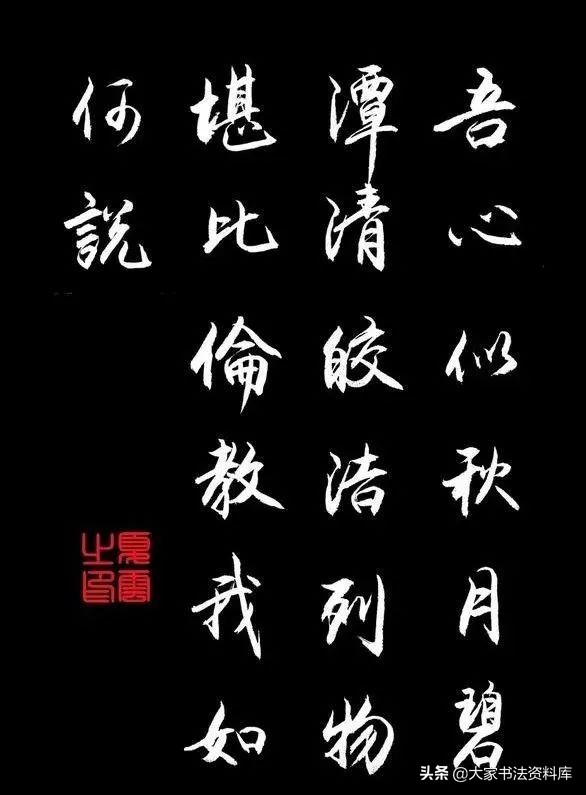 吾心似秋月碧
潭清皎洁列物
堪比倫教我如
何説
夏雲
之印
头条 @大家书法资料库